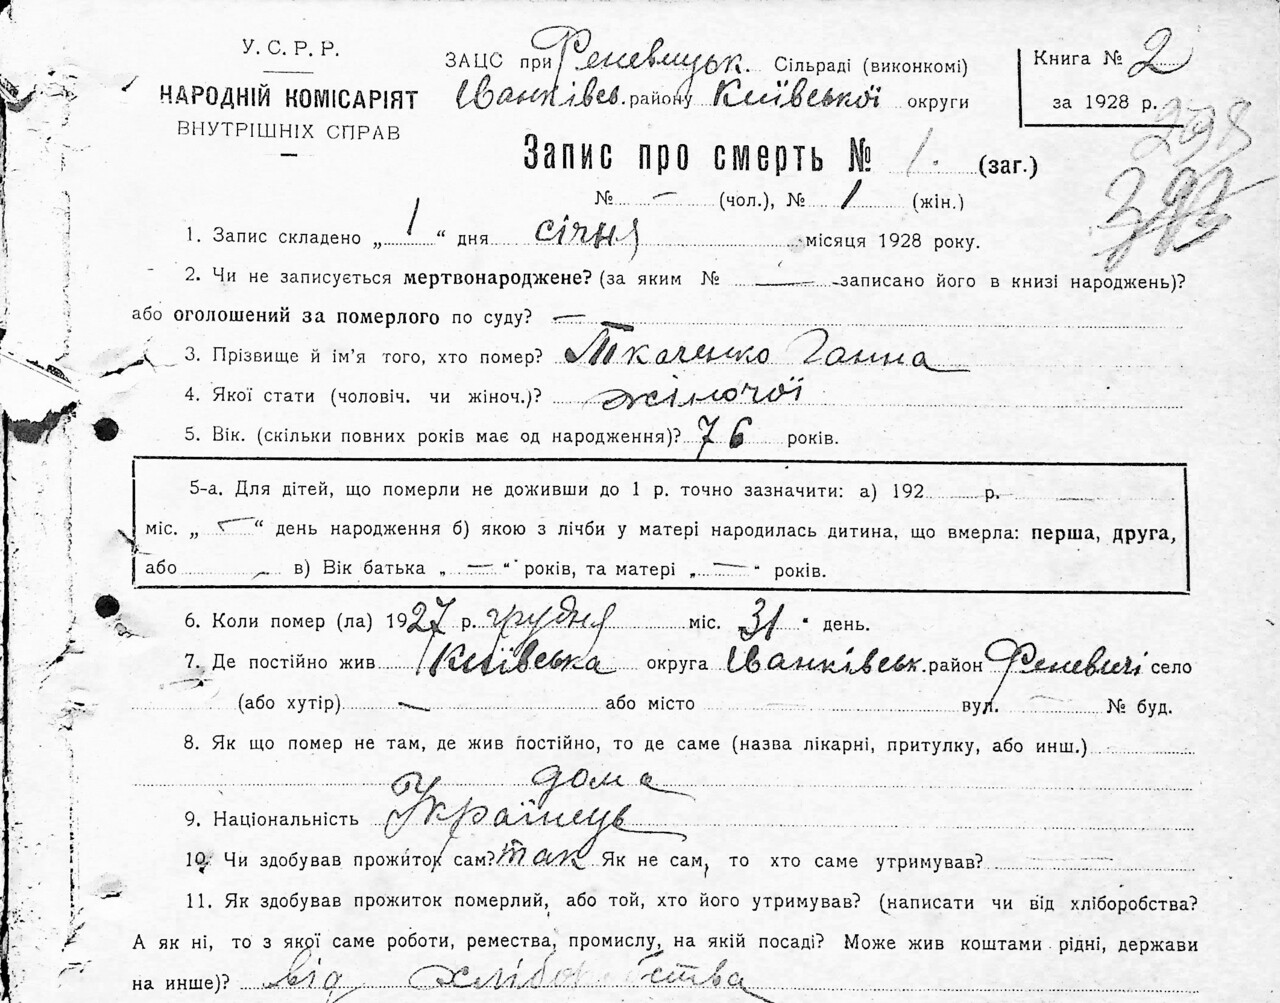 У. С. Р. Р.
НАРОДНІЙ КОМІСАРІЯТ
ВНУТРІШНІХ СПРАВ
ЗАЦС при Феневицьк. Сільраді (виконкомі)
Іванківськ. району Київської округи
Книга № 2
за 1928 р.
298
Запис про смерть № 1. (заг.)
№ — (чол.), № 1 (жін.)
1. Запис складено „ 1 “ дня січня місяця 1928 року.
2. Чи не записується мертвонароджене? (за яким № — записано його в книзі народжень)?
або оголошений за померлого по суду? —
3. Прізвище й ім'я того, хто помер? Ткаченко Ганна
4. Якої стати (чоловіч. чи жіноч.)? жіночої
5. Вік. (скільки повних років має од народження)? 76 років.
5-а. Для дітей, що померли не доживши до 1 р. точно зазначити: а) 192 р. —
міс. „ — “ день народження б) якою з лічби у матері народилась дитина, що вмерла: перша, друга,
або — в) Вік батька „ — “ років, та матері „ — “ років.
6. Коли помер (ла) 1927 р. грудня міс. 31 " день.
7. Де постійно жив Київська округа Іванківськ. район Феневичі село
(або хутір) — або місто — вул. — № буд.
8. Як що помер не там, де жив постійно, то де саме (назва лікарні, притулку, або инш.)
дома
9. Національність Українець
10. Чи здобував прожиток сам? так Як не сам, то хто саме утримував? —
11. Як здобував прожиток померлий, або той, хто його утримував? (написати чи від хліборобства?
А як ні, то з якої саме роботи, ремества, промислу, на якій посаді? Може жив коштами рідні, держави
на инше)? від хліборобства